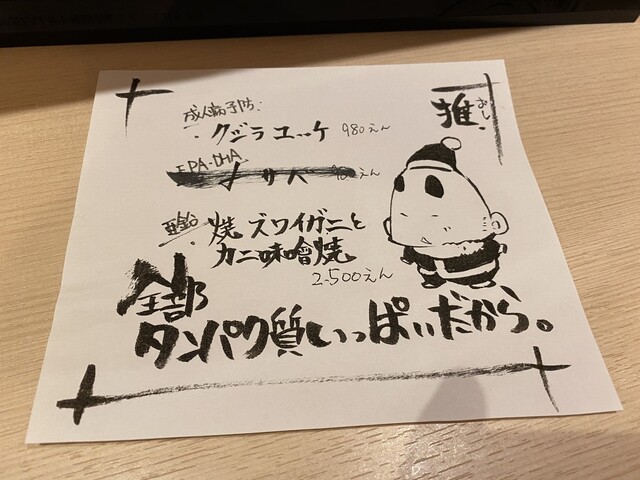 推し
おし
成人病予防.
・クジラユッケ 980えん
EPA・DHA
亜鉛 焼ズワイガニと
カニ味噌焼
2.500えん
全部
タンパク質いっぱいだから。